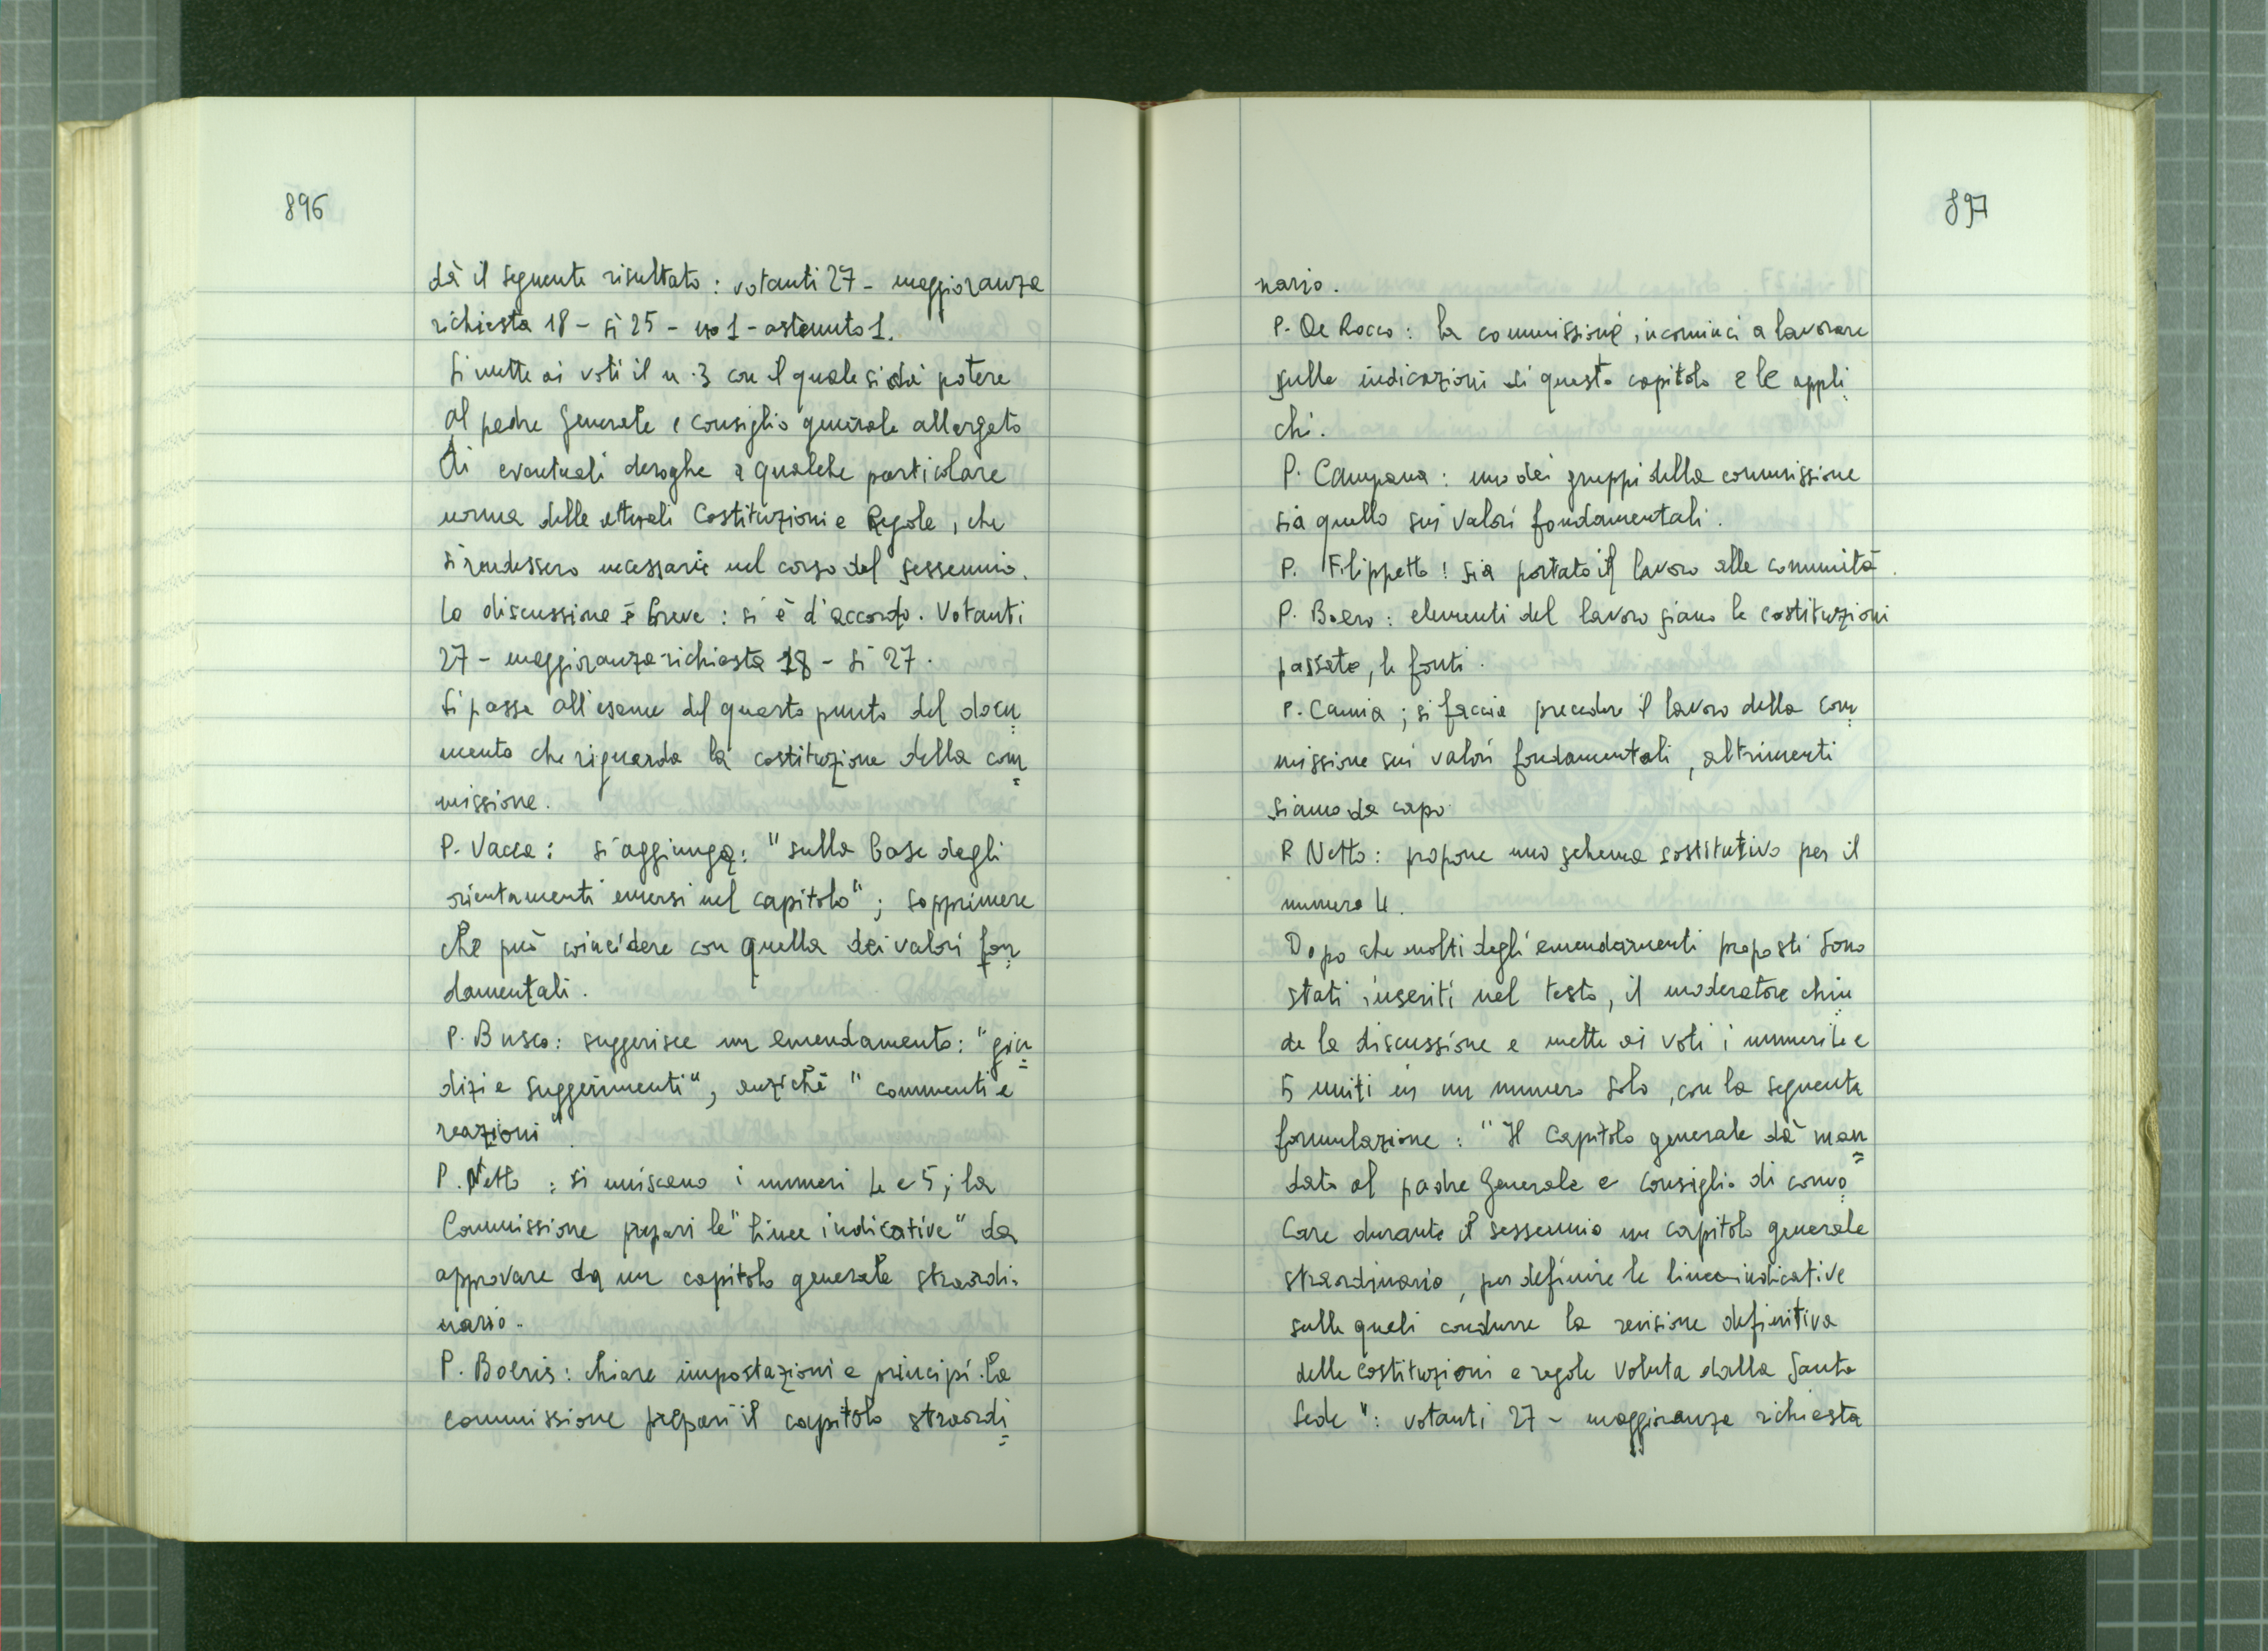 896
dà il seguente risultato : votanti 27 - maggioranza
richiesta 18 - sì 25 - no 1 - astenuto 1.
Si mette ai voti il n. 3 con il quale si dà potere
al padre Generale e consiglio generale allargato
di eventuali deroghe a qualche particolare
norma delle attuali Costituzioni e Regole, che
si rendessero necessarie nel corso del sessennio.
La discussione è breve : si è d'accordo. Votanti
27 - maggioranza richiesta 18 - sì 27.
Si passa all'esame del quarto punto del docu=
mento che riguarda la costituzione della com=
missione.
P. Vacca : si aggiunga: "sulla base degli
orientamenti emersi nel capitolo" ; sopprimere
che può coincidere con quella dei valori fon=
damentali.
P. Busco: suggerisce un emendamento: "giu=
dizi e suggerimenti", anziché "commenti e
reazioni".
P. Netto : si uniscano i numeri 4 e 5 ; la
Commissione prepari le "linee indicative" da
approvare da un capitolo generale straordi-
nario.
P. Boeris : chiare impostazioni e principi. La
commissione prepari il capitolo straordi=
897
nario.
P. De Rocco : la commissione incominci a lavorare
sulle indicazioni di questo capitolo e le appli=
chi.
P. Campana : uno dei gruppi della commissione
sia quello sui valori fondamentali.
P. Filippetto ! sia portato il lavoro alle comunità.
P. Boero : elementi del lavoro siano le costituzioni
passate, le fonti.
P. Camia ; si faccia precedere il lavoro della com=
missione sui valori fondamentali, altrimenti
siamo da capo
P. Netto : propone uno schema sostitutivo per il
numero 4.
Dopo che molti degli emendamenti proposti sono
stati inseriti nel testo, il moderatore chiu=
de la discussione e mette ai voti i numeri 4 e
5 uniti in un numero solo, con la seguente
formulazione : "Il Capitolo generale dà man=
dato al padre Generale e consiglio di convo=
care durante il sessennio un capitolo generale
straordinario, per definire le linee indicative
sulle quali condurre la revisione definitiva
delle costituzioni e regole voluta dalla Santa
Sede" : votanti 27 - maggioranza richiesta